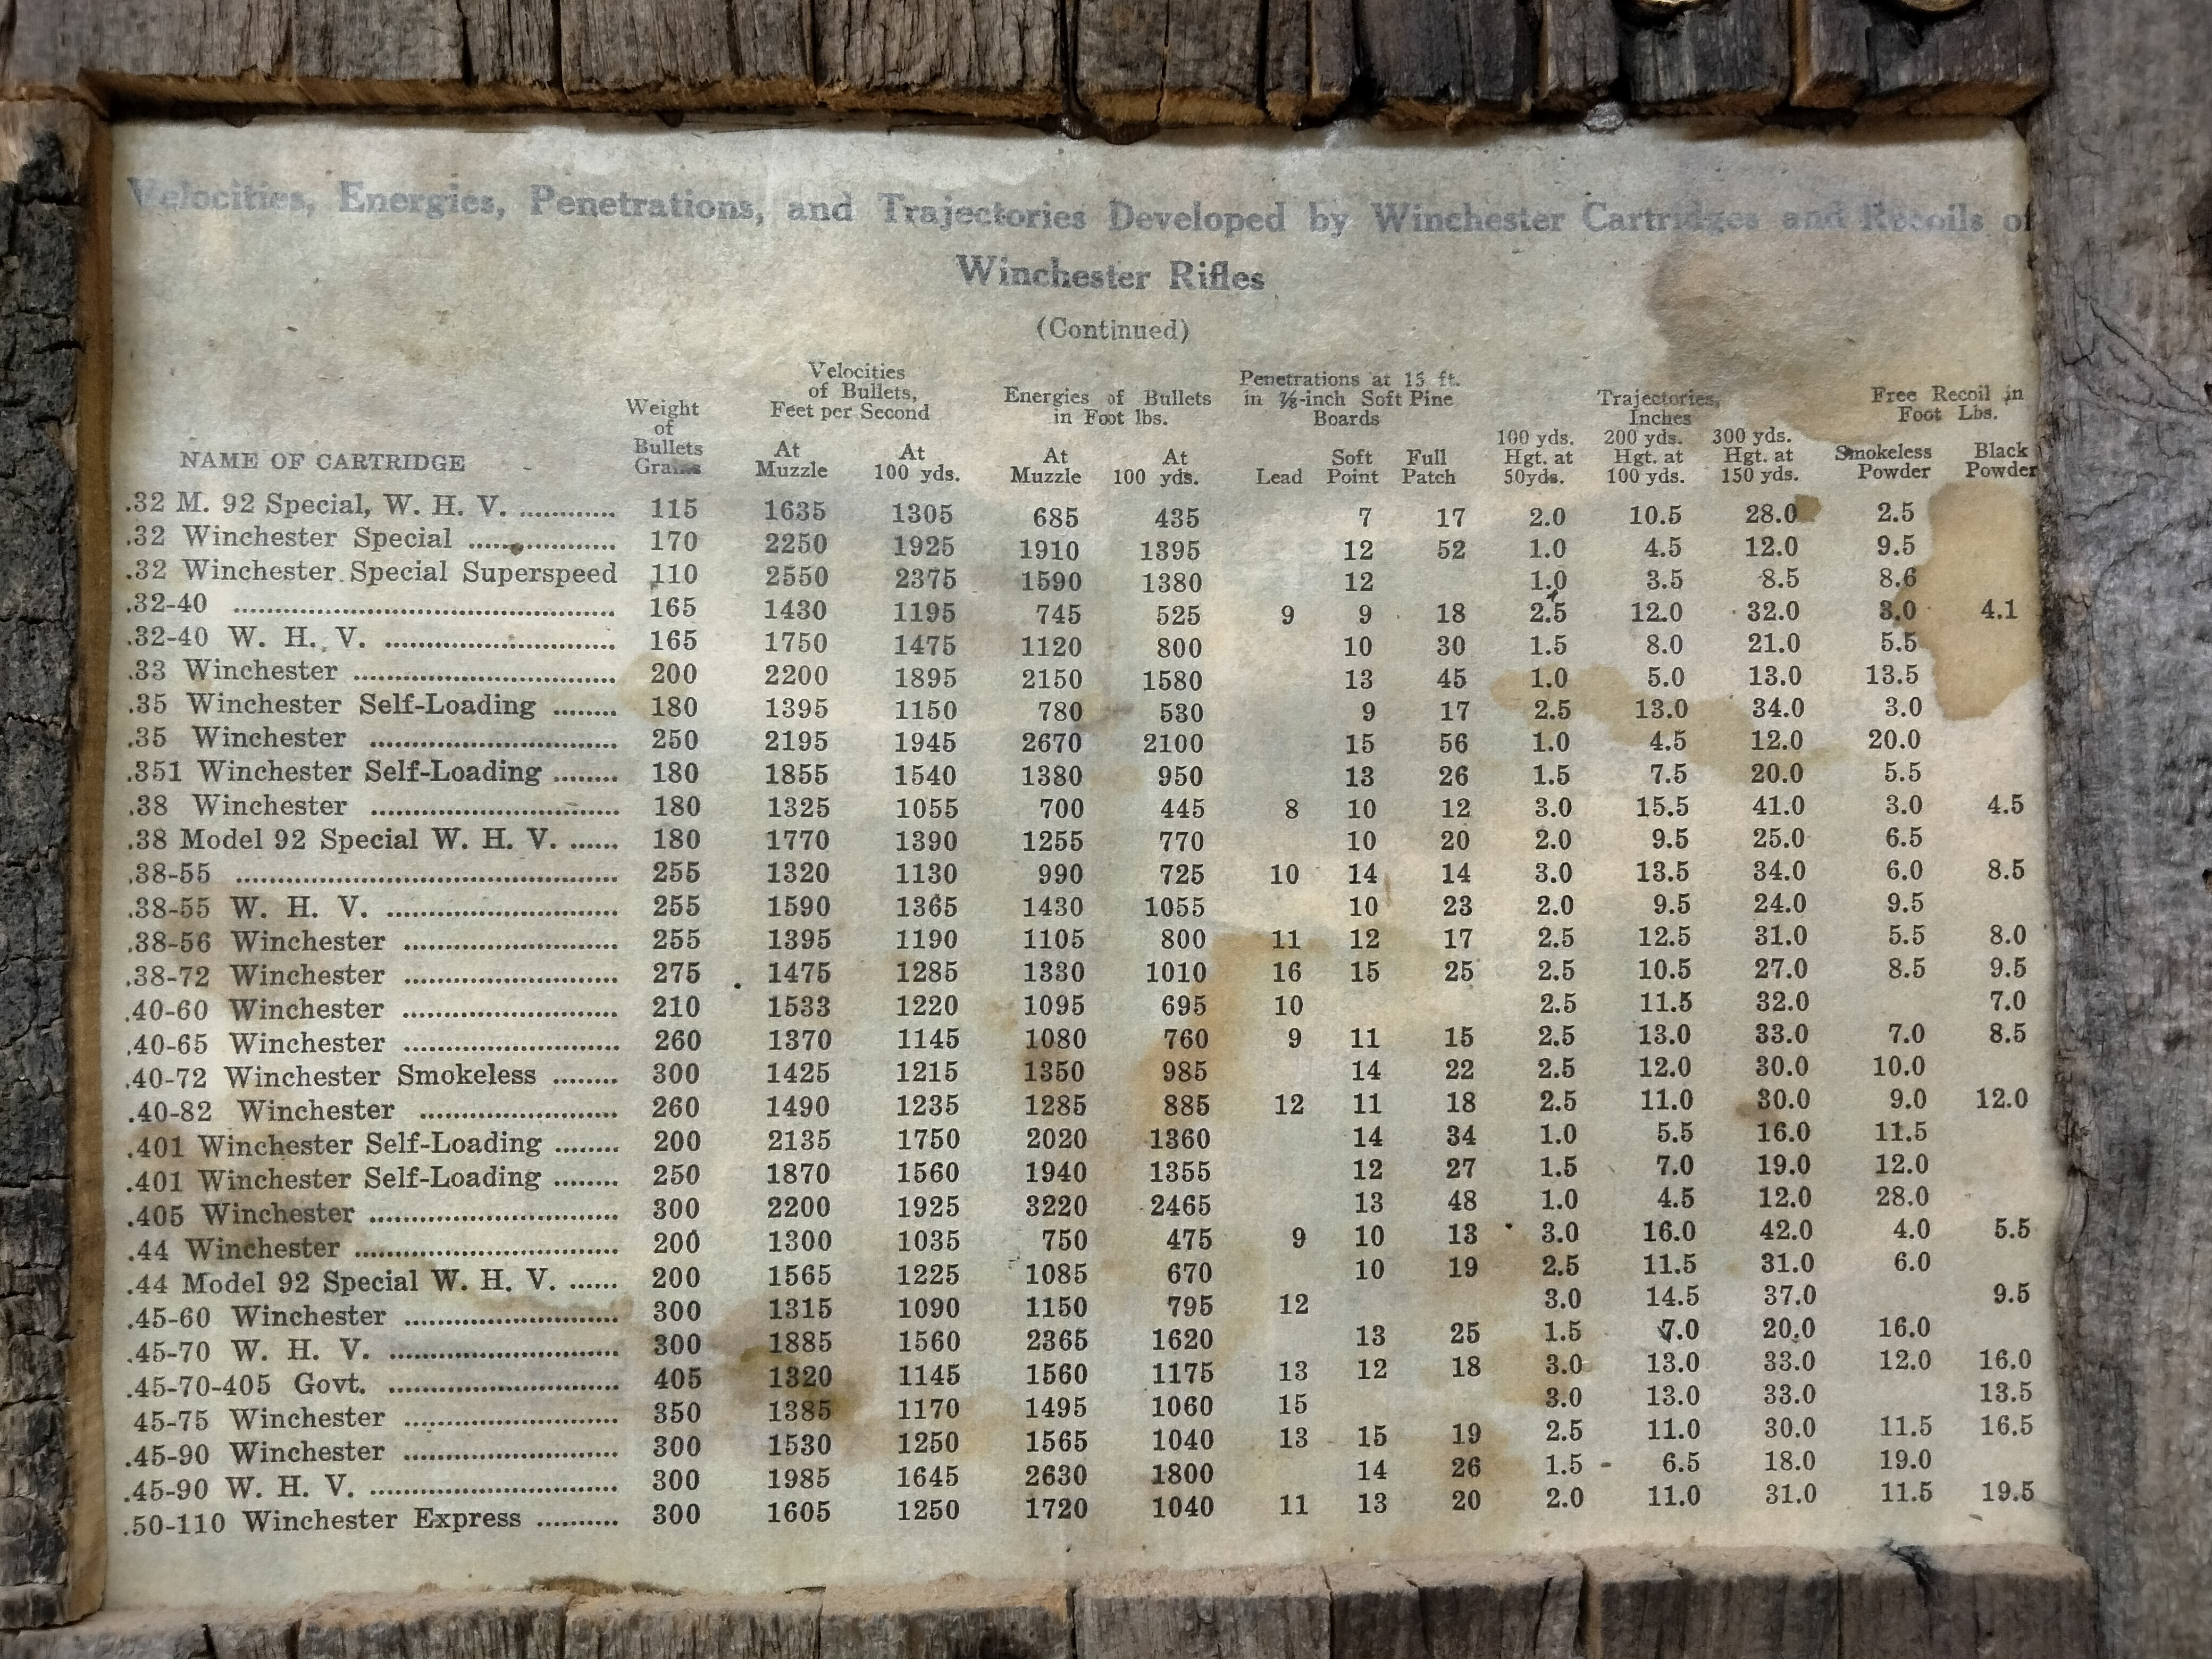 Velocities, Energies, Penetrations, and Trajectories Developed by Winchester Cartridges and Recoils of
Winchester Rifles
(Continued)
NAME OF CARTRIDGE
Weight of Bullets Grains
Velocities of Bullets, Feet per Second
At Muzzle
At 100 yds.
Energies of Bullets in Foot lbs.
At Muzzle
At 100 yds.
Penetrations at 15 ft. in ⅞-inch Soft Pine Boards
Lead
Soft Point
Full Patch
Trajectories, Inches
100 yds. Hgt. at 50yds.
200 yds. Hgt. at 100 yds.
300 yds. Hgt. at 150 yds.
Free Recoil in Foot Lbs.
Smokeless Powder
Black Powder
.32 M. 92 Special, W. H. V. ............ 115 1635 1305 685 435 7 17 2.0 10.5 28.0 2.5
.32 Winchester Special ................ 170 2250 1925 1910 1395 12 52 1.0 4.5 12.0 9.5
.32 Winchester Special Superspeed 110 2550 2375 1590 1380 12 1.0 3.5 8.5 8.6
.32-40 ................ 165 1430 1195 745 525 9 9 18 2.5 12.0 32.0 3.0 4.1
.32-40 W. H. V. ................ 165 1750 1475 1120 800 10 30 1.5 8.0 21.0 5.5
.33 Winchester ................ 200 2200 1895 2150 1580 13 45 1.0 5.0 13.0 13.5
.35 Winchester Self-Loading ........ 180 1395 1150 780 530 9 17 2.5 13.0 34.0 3.0
.35 Winchester ................ 250 2195 1945 2670 2100 15 56 1.0 4.5 12.0 20.0
.351 Winchester Self-Loading ........ 180 1855 1540 1380 950 13 26 1.5 7.5 20.0 5.5
.38 Winchester ................ 180 1325 1055 700 445 8 10 12 3.0 15.5 41.0 3.0 4.5
.38 Model 92 Special W. H. V. ...... 180 1770 1390 1255 770 10 20 2.0 9.5 25.0 6.5
.38-55 ................ 255 1320 1130 990 725 10 14 14 3.0 13.5 34.0 6.0 8.5
.38-55 W. H. V. ................ 255 1590 1365 1430 1055 10 23 2.0 9.5 24.0 9.5
.38-56 Winchester ................ 255 1395 1190 1105 800 11 12 17 2.5 12.5 31.0 5.5 8.0
.38-72 Winchester ................ 275 1475 1285 1330 1010 16 15 25 2.5 10.5 27.0 8.5 9.5
.40-60 Winchester ................ 210 1533 1220 1095 695 10 2.5 11.5 32.0 7.0
.40-65 Winchester ................ 260 1370 1145 1080 760 9 11 15 2.5 13.0 33.0 7.0 8.5
.40-72 Winchester Smokeless ........ 300 1425 1215 1350 985 14 22 2.5 12.0 30.0 10.0
.40-82 Winchester ................ 260 1490 1235 1285 885 12 11 18 2.5 11.0 30.0 9.0 12.0
.401 Winchester Self-Loading ........ 200 2135 1750 2020 1360 14 34 1.0 5.5 16.0 11.5
.401 Winchester Self-Loading ........ 250 1870 1560 1940 1355 12 27 1.5 7.0 19.0 12.0
.405 Winchester ................ 300 2200 1925 3220 2465 13 48 1.0 4.5 12.0 28.0
.44 Winchester ................ 200 1300 1035 750 475 9 10 13 3.0 16.0 42.0 4.0 5.5
.44 Model 92 Special W. H. V. ...... 200 1565 1225 1085 670 10 19 2.5 11.5 31.0 6.0
.45-60 Winchester ................ 300 1315 1090 1150 795 12 3.0 14.5 37.0 9.5
.45-70 W. H. V. ................ 300 1885 1560 2365 1620 13 25 1.5 7.0 20.0 16.0
.45-70-405 Govt. ................ 405 1320 1145 1560 1175 13 12 18 3.0 13.0 33.0 12.0 16.0
45-75 Winchester ................ 350 1385 1170 1495 1060 15 3.0 13.0 33.0 13.5
.45-90 Winchester ................ 300 1530 1250 1565 1040 13 15 19 2.5 11.0 30.0 11.5 16.5
.45-90 W. H. V. ................ 300 1985 1645 2630 1800 14 26 1.5 6.5 18.0 19.0
.50-110 Winchester Express .......... 300 1605 1250 1720 1040 11 13 20 2.0 11.0 31.0 11.5 19.5